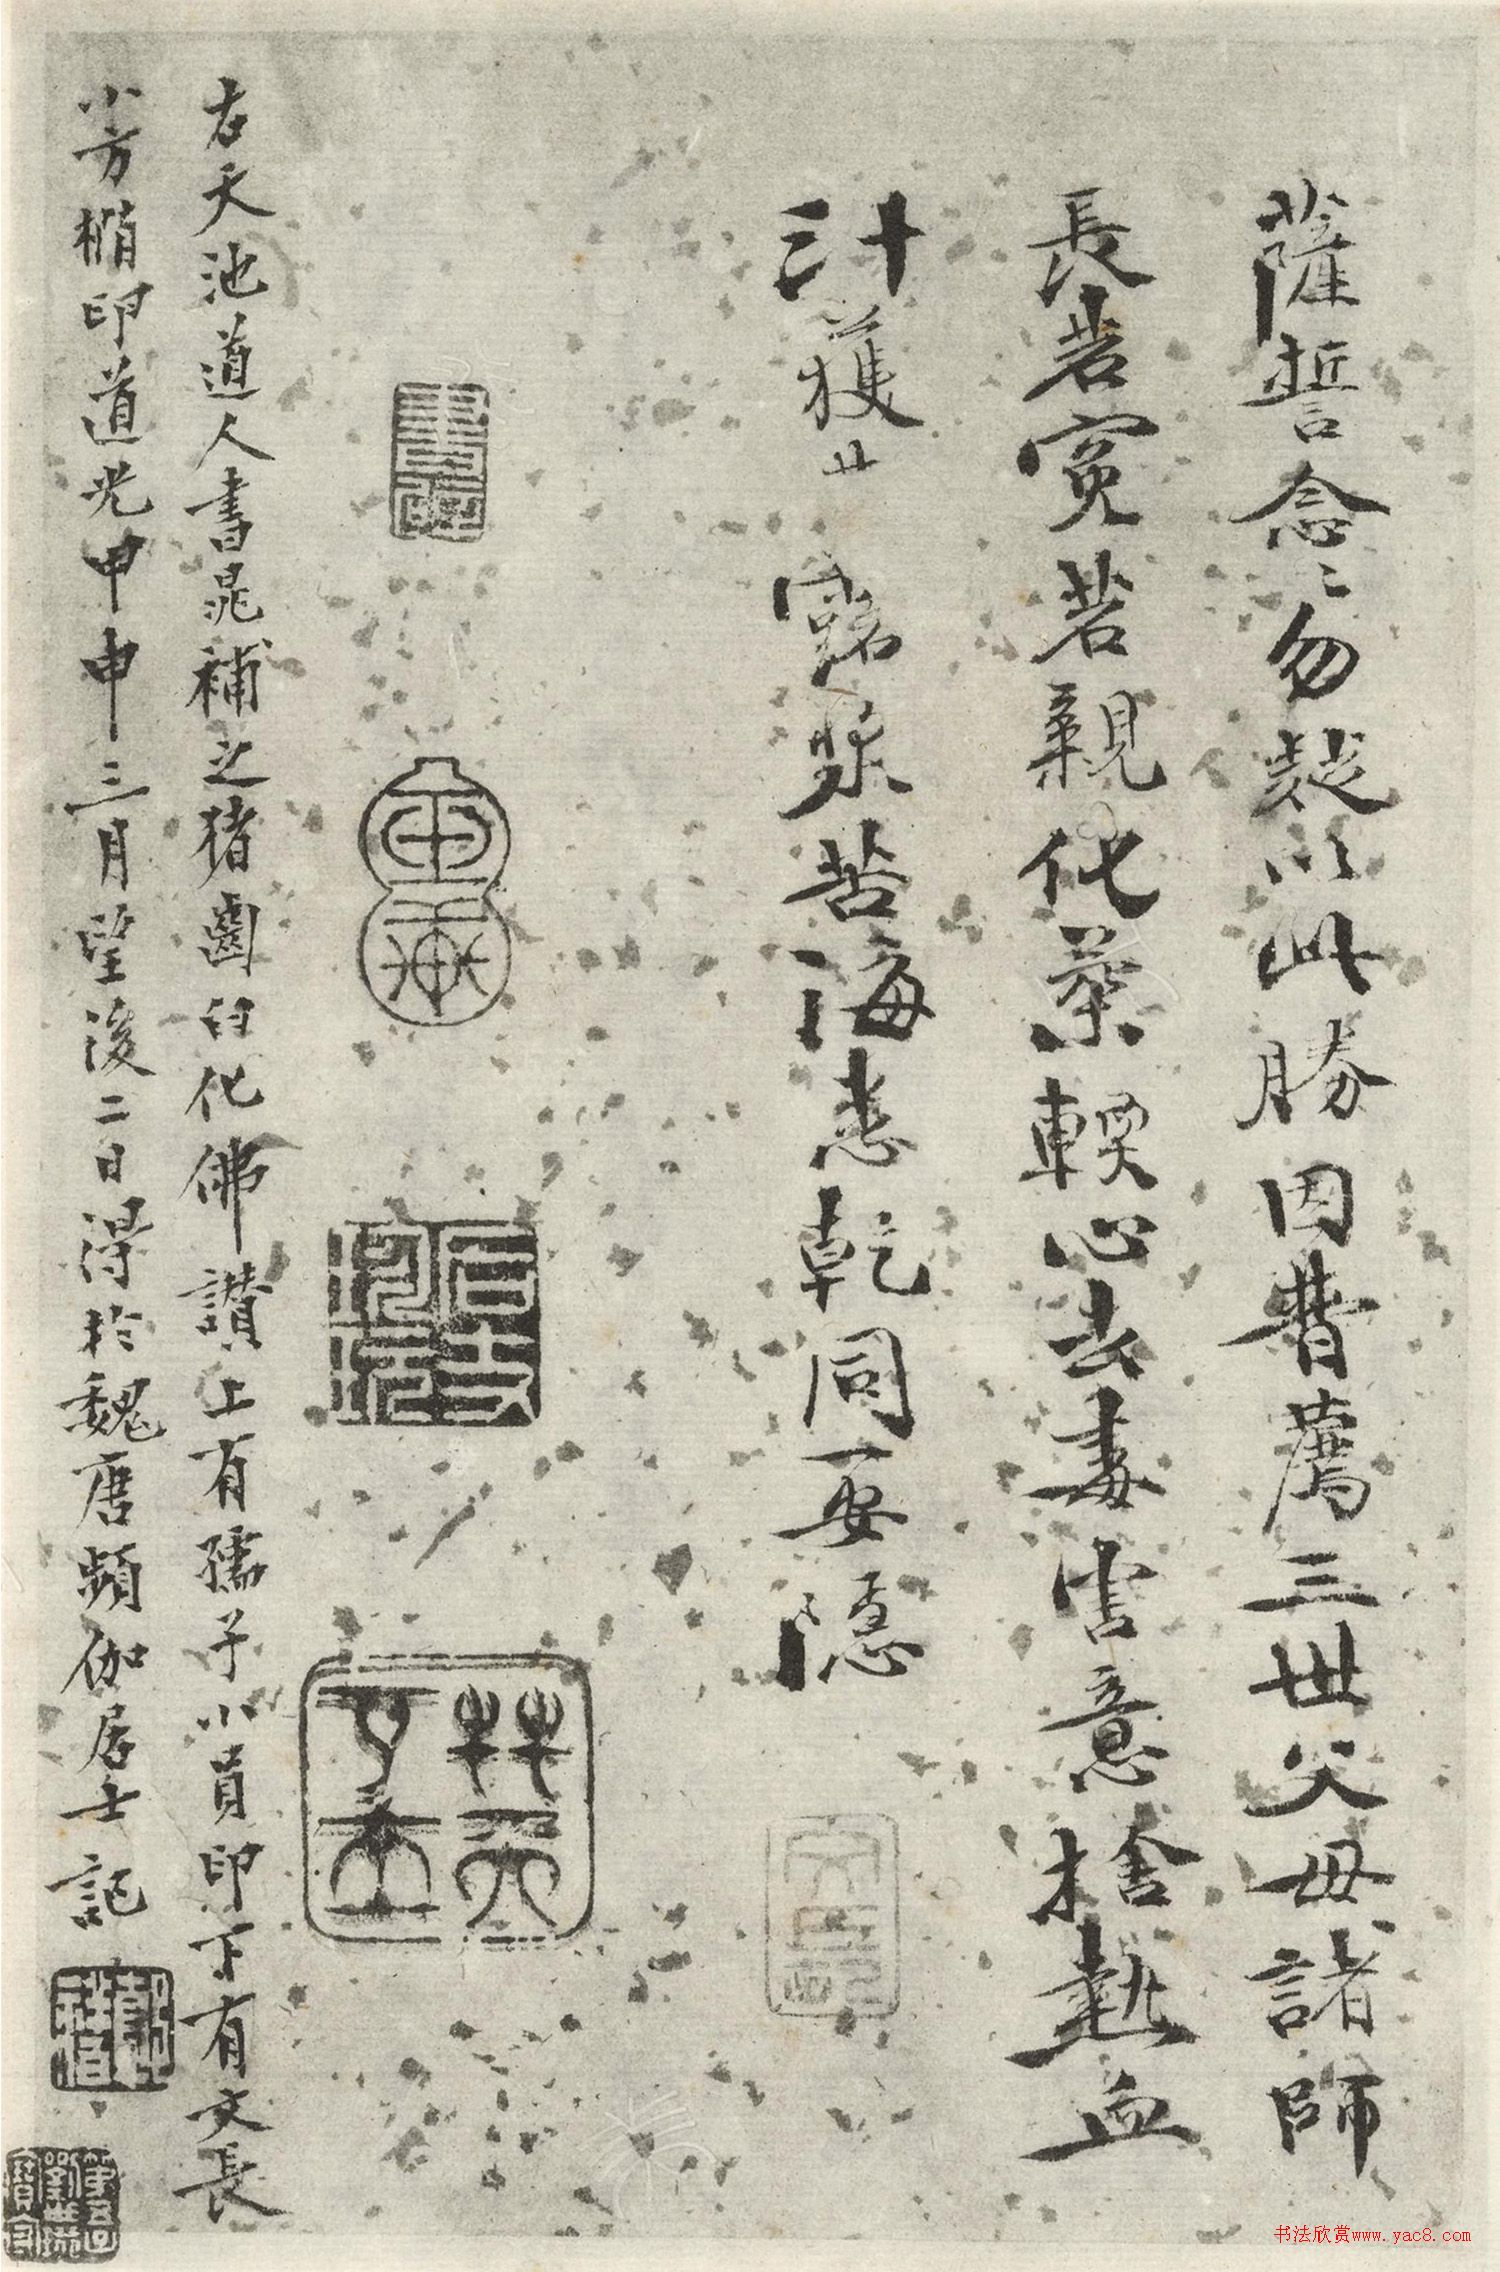 薩誓念〻勿疑以此勝因普薦三世父母諸師
長若冤若親化藥輭心去毒害意捨熱血
汁獲甘露漿苦海悉乾同一安隱
右天池道人書晁補之猪齒臼化佛讚上有孺子小員印下有文長
小方橢印道光甲申三月望後二日得於魏唐頻伽居士記
书法欣赏www.yac8.com